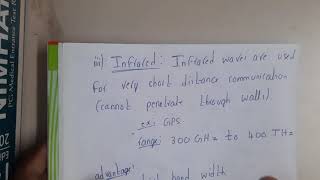 iii) Infrared: Infrared waves are used
for very short distance communication
(cannot penetrate through walls).
ex: GPS
range: 300 GHz to 400 THz
advantage:
band width
PG Medical Entrance Test